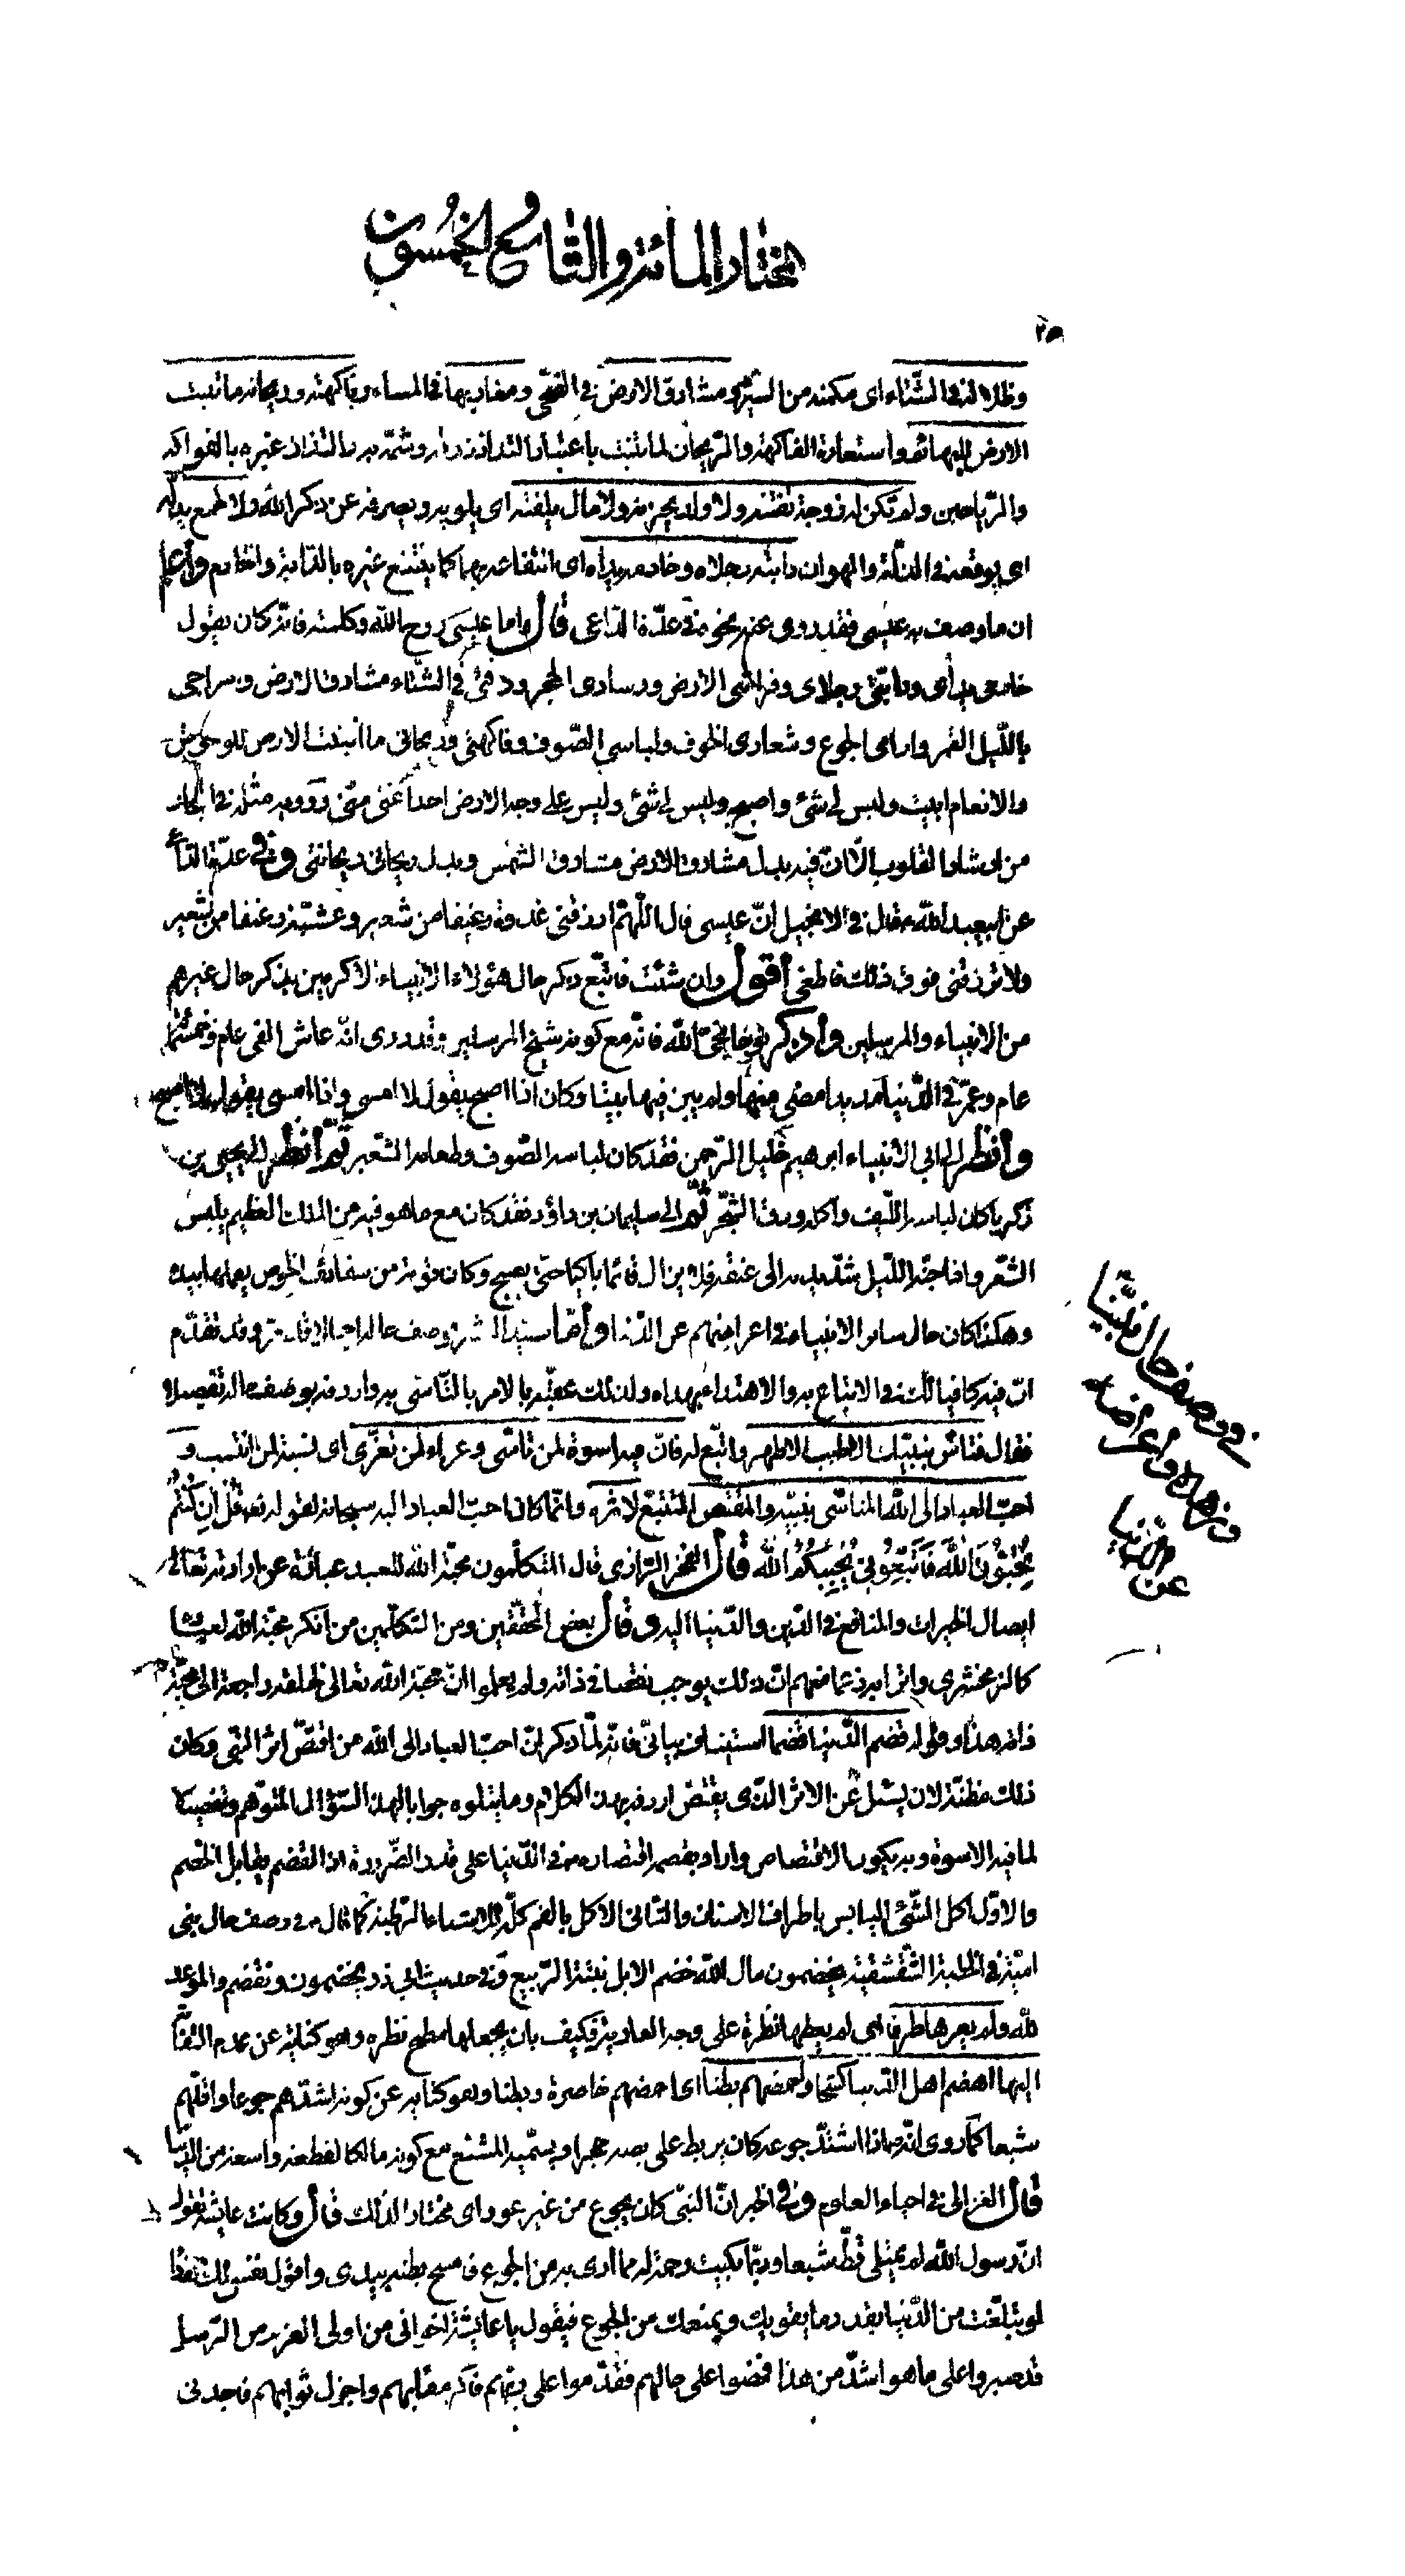 المختار المائة والتاسع الخمسون
وظلاله في الشتاء اى مكمنه من السبرد مشارق الارض في الضحى ومغاربها في المساء وفاكهته وريحانه ما تنبت
الارض للبهائم واستعارة الفاكهة والريحان لما تنبت باعتبار التذاذ ذوقه وشمه به التذاذ غيره بالفواكه
والرياحين ولم تكن له زوجة تفتنه ولا ولد يحزنه ولا مال يلفته اى يلويه ويصرفه عن ذكر الله ولا طمع يذله
اى يوقعه في الذلة والهوان دابته رجلاه وخادمه يداه اى انتفاعه بهما كما ينتفع غيره بالدابة والخادم واعلم
ان ما وصف به عيسى فقد روى عنه نحوه في عدة الداعى قال واما عيسى روح الله وكلمته فانه كان يقول
خادمى يداى ودابتى رجلاى وفراشى الارض ووسادى الحجر ودفئى في الشتاء مشارق الارض وسراجى
بالليل القمر وادامى الجوع وشعارى الخوف ولباسى الصوف وفاكهتى وريحانى ما انبتت الارض للوحوش
والانعام ابيت وليس لى شئ واصبح وليس لى شئ وليس على وجه الارض احد اغنى منى ورويه مثله في البحار
من ارشاد القلوب الا ان فيه بدل مشارق الارض مشارق الشمس وبدل ريحانى ريحانتى وفي عدة الداعى
عن ابيعبد الله قال في الانجيل ان عيسى قال اللهم ارزقنى غدوة رغيفا من شعير وعشية رغيفا من شعير
ولا ترزقنى فوق ذلك فاطغى اقول وان شئت فاتبع ذكر حال هؤلاء الانبياء الاكرمين بذكر حال غيرهم
من الانبياء والمرسلين واذكر نوحا نجى الله فانه مع كونه شيخ المرسلين وقد روى انه عاش الفى عام وخمسمائة
عام وعمر في الدنيا مديدا مضى منها ولم يبن فيها بيتا وكان اذا اصبح يقول لا امسى واذا امسى يقول لا اصبح
وانظر الى ابى الانبياء ابرهيم خليل الرحمن فقد كان لباسه الصوف وطعامه الشعير ثم انظر الى يحيى بن
زكريا كان لباسه الليف واكله ورق الشجر ثم الى سليمان بن داود فقد كان مع ما هو فيه من الملك العظيم يلبس
الشعر واذا جنه الليل شد يديه الى عنقه فلا يزال قائما باكيا حتى يصبح وكان قوته من سفائف الخوص يعملها بيده
وهكذا كان حال سائر الانبياء في اعراضهم عن الدنيا واما سيد البشر وصف حاله اجمالا وقد تقدم
ان فيه كافيا لك في الاتباع به والاهتداء بهداه ولذلك عقبه بالامر بالتاسى به واردفه بوصف حاله تفصيلا
فقال فتاس بنبيك الاطيب الاطهر واتبع له فان فيه اسوة لمن تاسى وعزاء لمن تعزى اى نسبة لمن انتسب و
احب العباد الى الله المتاسى بنبيه والمقتص المتتبع لاثره وانما كان احب العباد اليه سبحانه لقوله تعالى قل ان كنتم
تحبون الله فاتبعونى يحببكم الله قال الفخر الرازى قال المتكلمون محبة الله للعبد عبارة عن ارادته تعالى
ايصال الخيرات والمنافع في الدين والدنيا اليه وقال بعض المحققين ومن المتكلمين من انكر محبة الله لعباده
كالزمخشرى واترابه زعما منهم ان ذلك يوجب نقصا في ذاته ولم يعلموا ان محبة الله تعالى لخلقه راجعة الى محبة
ذاته هذا وقوله قضم الدنيا قضما استيناف بيانى فانه لما ذكر ان احب العباد الى الله من اقتص اثر النبى وكان
ذلك مظنة لان يسئل عن الاثر الذى يقتص اردفه بهذا الكلام وما يتلوه جوابا لهذا السؤال المتوهم وتفصيلا
لما فيه الاسوة وبه يكون الاقتصاص واراد بقضمه اقتصاره في الدنيا على قدر الضرورة اذ القضم يقابل الخضم
والاول اكل الشئ اليابس باطراف الاسنان والثانى الاكل بالفم كله للاشياء الرطبة كما قال في وصف حال بنى
امية في الخطبة الشقشقية يخضمون مال الله خضم الابل نبتة الربيع وفي حديث ابى ذر يخضمون ونقضم والموعد
لله ولم يعرها طرفا اى لم يعطها نظرة على وجه العارية فكيف بان يجعلها مطمح نظره وهو كناية عن عدم التفاته
اليها اهضم اهل الدنيا كشحا واخمصهم بطنا اى اخمصهم خاصرة وبطنا وهو كناية عن كونه اشدهم جوعا واقلهم
شبعا كما روى انه اذا اشتد جوعه كان يربط على بطنه حجرا ويسميه المشبع مع كونه مالكا لقطعة واسعة من الدنيا
قال الغزالى في احياء العلوم وفي الخبر ان النبى كان يجوع من غير عوز اى مختارا لذلك قال وكانت عايشة تقول
ان رسول الله لم يمتلى قط شبعا وربما بكيت رحمة له مما ارى به من الجوع فامسح بطنه بيدى واقول نفسى لك الفداء
لو تبلغت من الدنيا بقدر ما يقويك ويمنعك من الجوع فيقول يا عايشة اخوانى من اولى العزم من الرسل
قد صبروا على ما هو اشد من هذا فمضوا على حالهم فقدموا على ربهم فاكرم مقابهم واجزل ثوابهم فاجدنى
في وصف حال نبينا
وزهده واعراضه
عن الدنيا